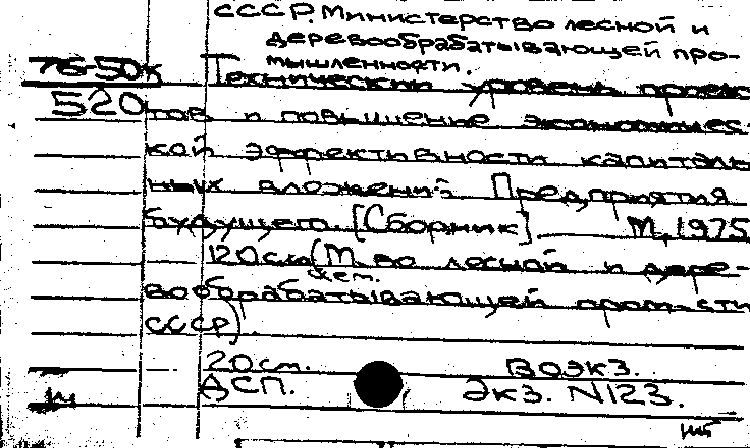 СССР. Министерство лесной и
деревообрабатывающей про-
мышленности.
76-50к Технический уровень проек-
520 тов и повышение экономичес-
кой эффективности капиталь
ных вложений. Предприятия
будущего. [Сборник]. М., 1975
120 с. (М-во лесной и дере-
вообрабатывающей пром-сти
СССР).
20 см. 80 экз.
ДСП. Экз. N123.